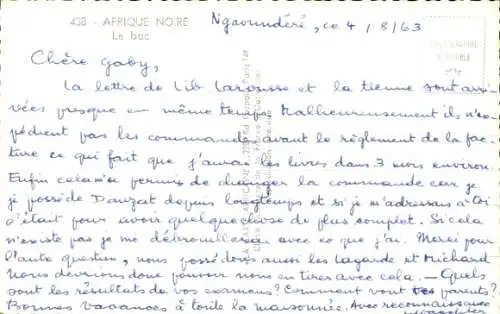 438 - AFRIQUE NOIRE
Le bac
Ngaoundéré, ce 4/8/63
Chère Gaby,
La lettre de Lib Larousse et la tienne sont arri-
vées presque en même temps. Malheureusement ils n'ex-
pédient pas les commandes avant le règlement de la fac-
ture ce qui fait que j'aurai les livres dans 3 mois environ.
Enfin cela m'a permis de changer la commande car je
possède Dauzat depuis longtemps et si je m'adressais à toi
c'était pour avoir quelque chose de plus complet. Si cela
n'existe pas je me débrouillerai avec ce que j'ai. Merci pour
l'autre question, nous possédons aussi les Lagarde et Michard
Nous devrions donc pouvoir nous en tirer avec cela. - Quels
sont les résultats de vos examens? Comment vont tes parents?
Bonnes vacances à toute la maisonnée. Avec reconnaissance